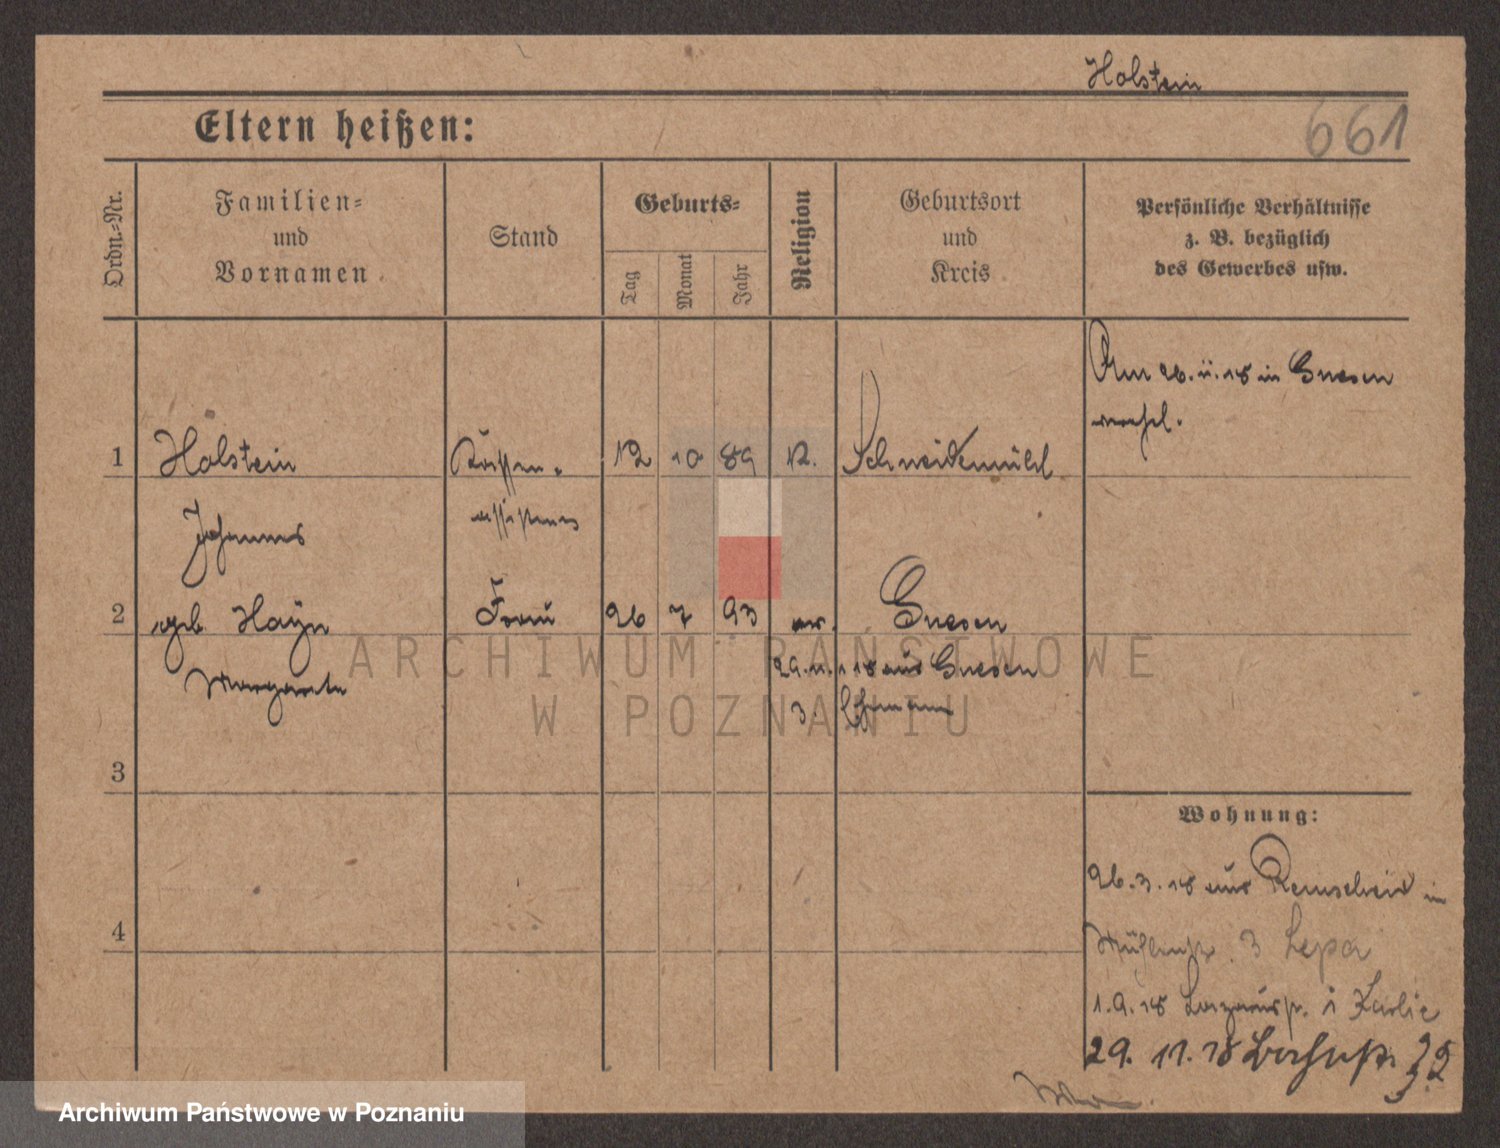 Holstein
661
Eltern heißen:
Ordn.-Nr.
Familien-
und
Vornamen
Stand
Geburts-
Tag
Monat
Jahr
Religion
Geburtsort
und
Kreis
Persönliche Verhältnisse
z. B. bezüglich
des Gewerbes usw.
Am 26.11.18 in Gnesen
1 Holstein 12 10 89 Schneidemühl
Johannes
2 geb Hayn Frau 26 7 93 ev. Gnesen
Margarete
29.11.18 aus Gnesen
3.
3
Wohnung:
26.3.18 aus Remscheid in
3 Lepa
4
1.9.18
29. 11. 18
ARCHIWUM PAŃSTWOWE
W POZNANIU
Archiwum Państwowe w Poznaniu